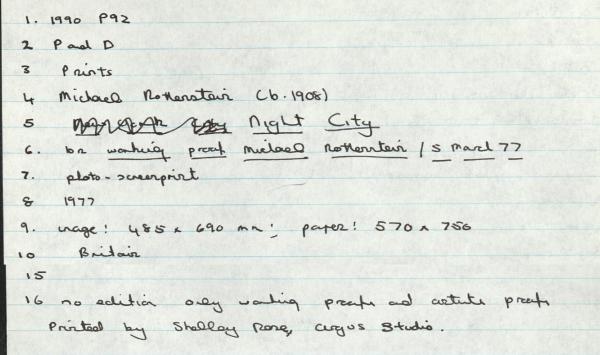 1. 1990 P92
2 P and D
3 Prints
4 Michael Rothenstein (b. 1908)
5 Night City
6. br working proof Michael Rothenstein / 5 March 77
7. photo-screenprint
8 1977
9. image: 485 x 690 mm; paper: 570 x 756
10 Britain
15
16 no edition only working proofs and artists proofs
Printed by Shelley Rose, Argus Studio.